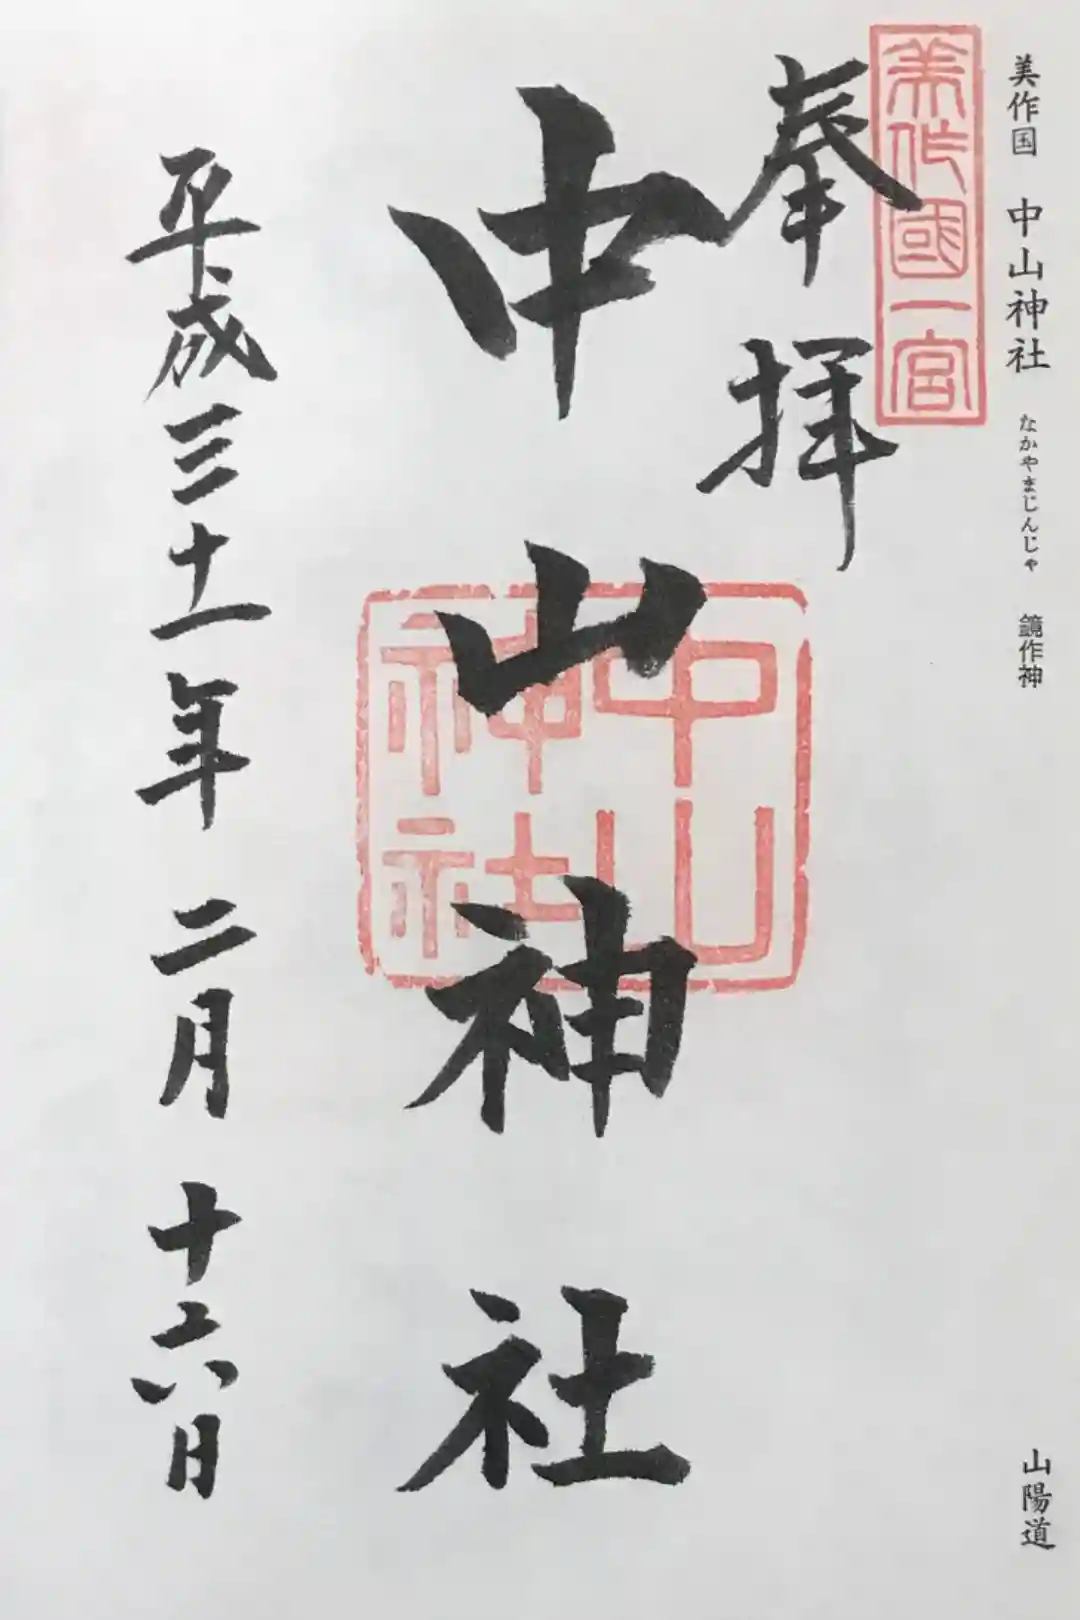 美作国 中山神社 なかやまじんじゃ 鏡作神
山陽道
美作國一宮
奉拝
中山神社
中山
神社
平成三十一年二月十六日